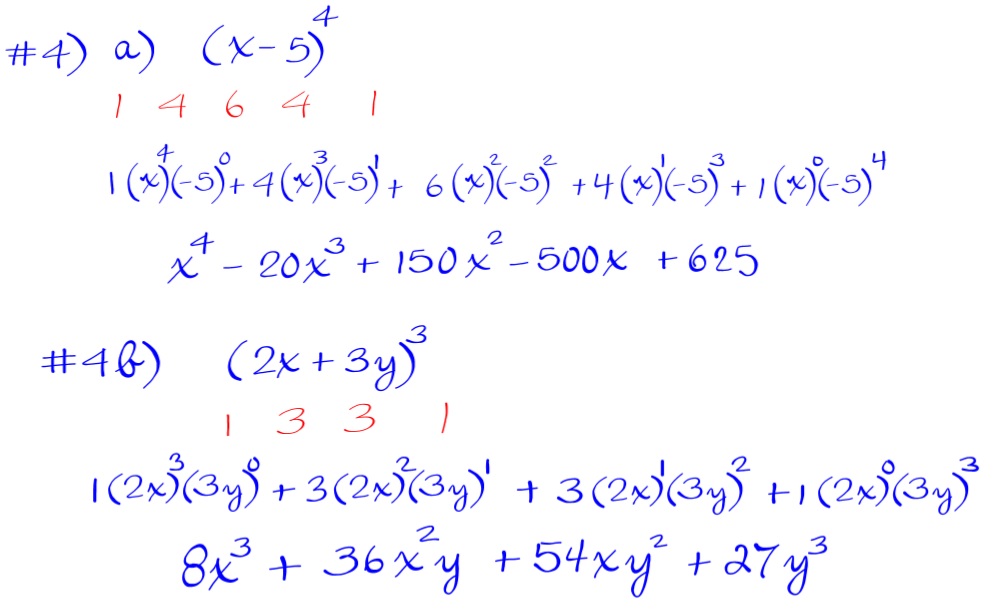 #4) a) (x-5)⁴
1 4 6 4 1
1(x)⁴(-5)⁰+4(x)³(-5)¹+ 6(x)²(-5)² +4(x)¹(-5)³+1(x)⁰(-5)⁴
x⁴ - 20x³ + 150x² -500x +625
#4b) (2x+3y)³
1 3 3 1
1(2x)³(3y)⁰ +3(2x)²(3y)¹ + 3(2x)¹(3y)² +1(2x)⁰(3y)³
8x³ + 36x²y +54xy² +27y³